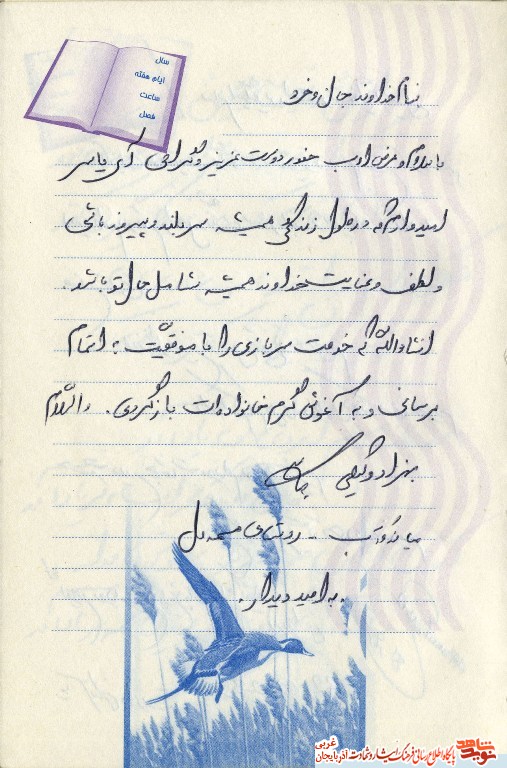 سال
ایام هفته
ساعت
فصل
بنام خداوند جان و خرد
با سلام و عرض ادب حضور دوست عزیز و گرامی آقای یاسر
امیدوارم که در طول زندگی همیشه سربلند و پیروز باشی
و لطف و عنایت خداوند همیشه شامل حال تو باشد.
انشاءالله که خدمت سربازی را با موفقیت به اتمام
برسانی و به آغوش گرم خانواده‌ات بازگردی. والسلام
بهزاد
میاندوآب - روستای
به امید دیدار.
نوید شاهد
پایگاه اطلاع رسانی فرهنگ ایثار و شهادت آذربایجان غربی